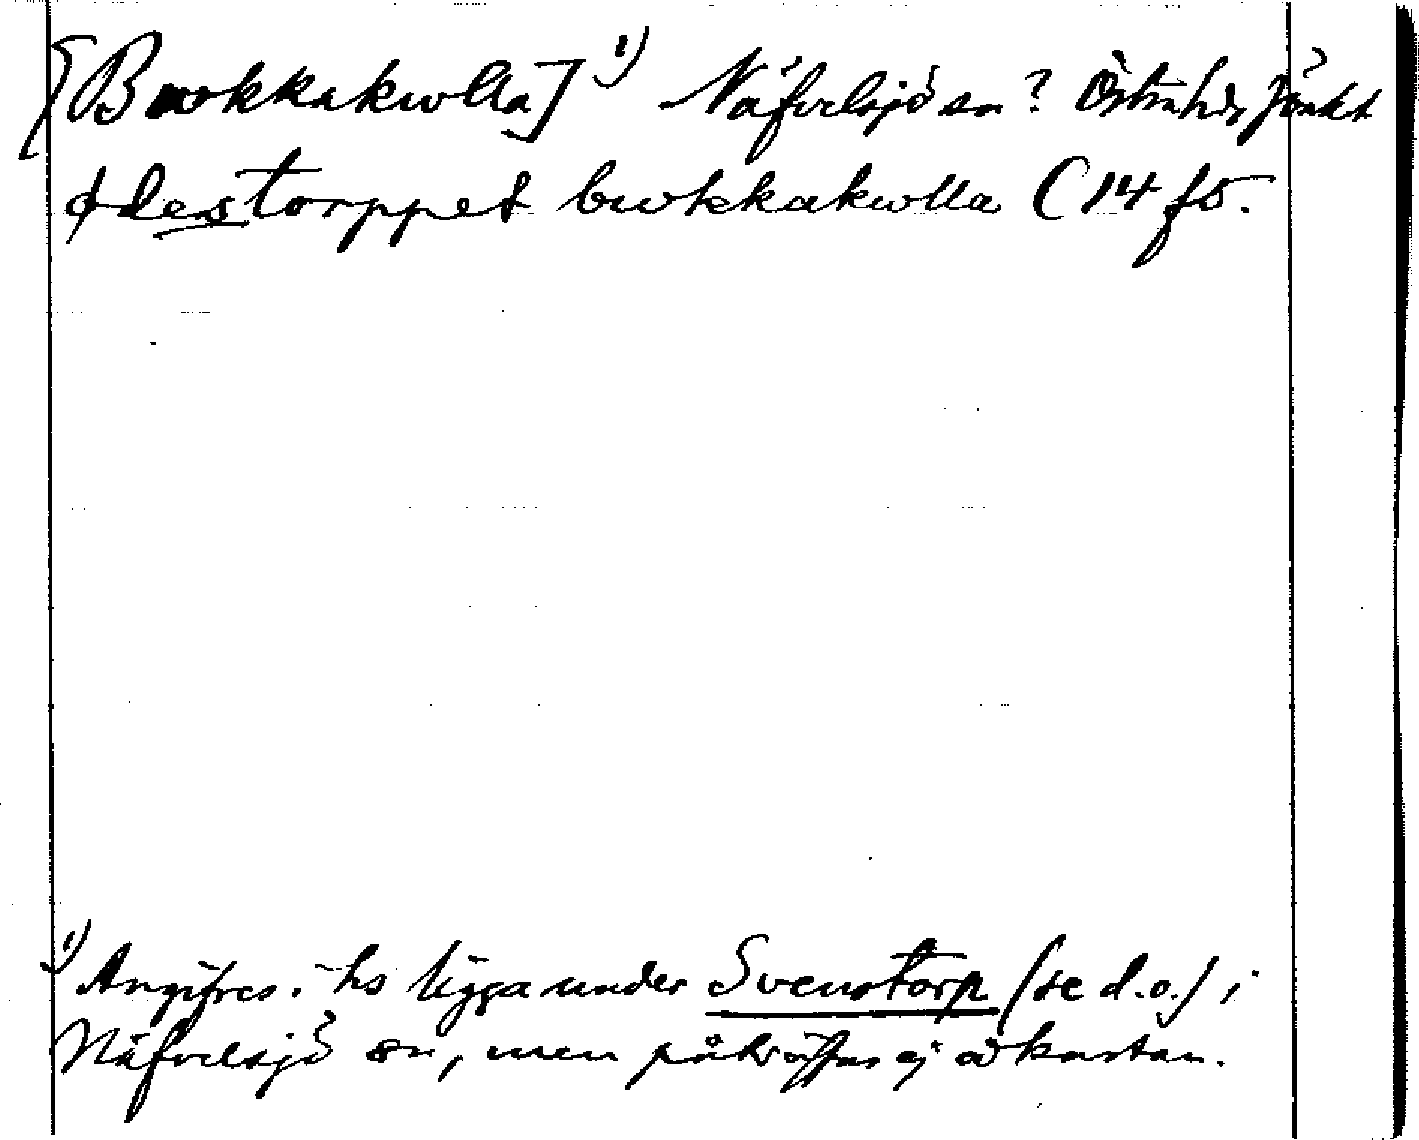 [Buokkakwlla] 1) Näfvelsjö sn? Östra hd, Jönk.
ødestorppet buokkakwlla C 14 f 5.
1) Angifves i hs ligga under Svenstorp (se d.o.) i
Näfvelsjö sn, men påträffas ej å kartan.